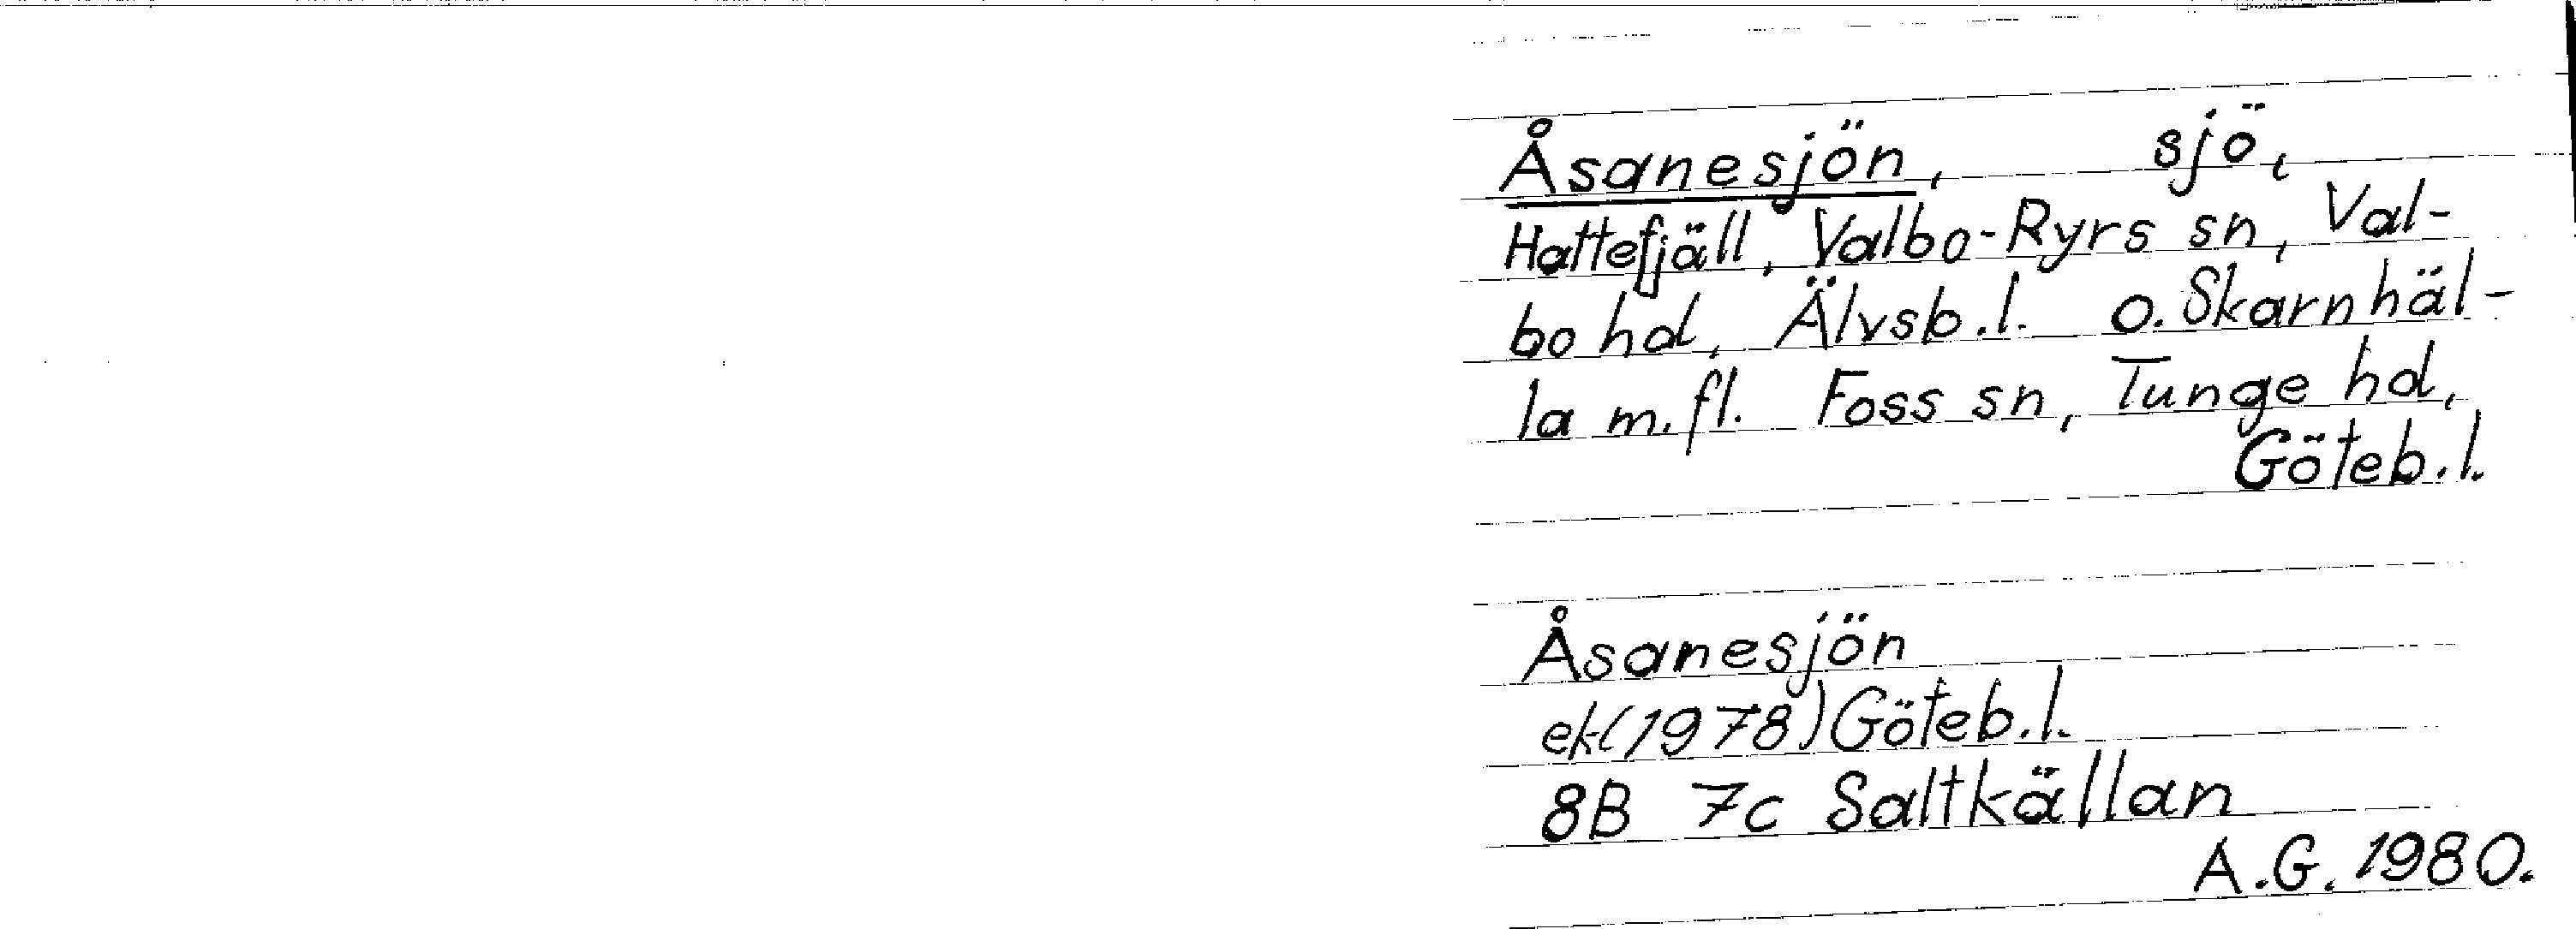 Åsanesjön, sjö,
Hattefjäll, Valbo-Ryrs sn, Val-
bo hd, Älvsb.l. o. Skarnhäl-
la m.fl. Foss sn, Tunge hd,
Göteb.l.
Åsanesjön
ek(1978) Göteb.l.
8B 7c Saltkällan
A.G. 1980.